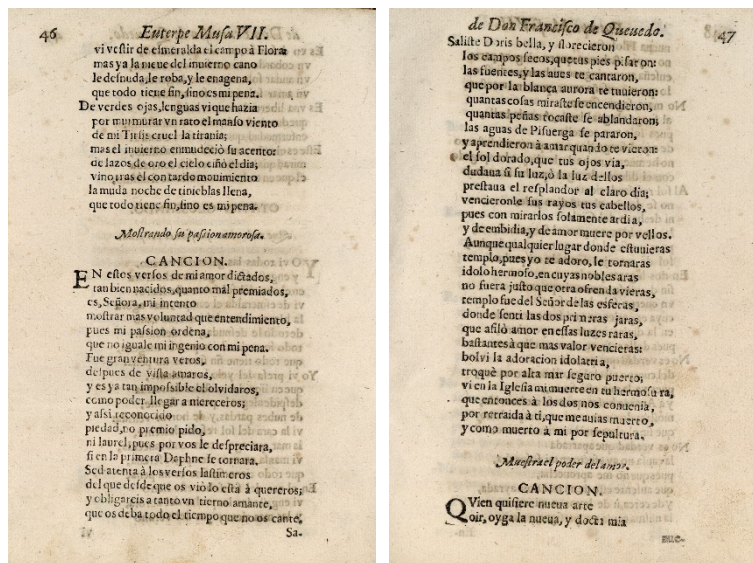 46 Euterpe Musa VII.
vi vestir de esmeralda el campo à Flora:
mas ya la nieue del inuierno cano
le desnuda, le roba, y le enagena,
que todo tiene fin, sino es mi pena.
De verdes ojas, lenguas vi que hazia
por murmurar vn rato el manso viento
de mi Tirsis cruel la tirania;
mas el inuierno enmudeciò su acento:
de lazos de oro el cielo ciñò el dia;
vino, tras èl con tardo mouimiento
la muda noche de tinieblas llena,
que todo tiene fin, sino es mi pena.
Mostrando su passion amorosa.
CANCION.
EN estos versos de mi amor dictados,
tan bien nacidos, quanto mal premiados,
es, Señora, mi intento
mostrar mas voluntad que entendimiento,
pues mi passion ordena,
que no iguale mi ingenio con mi pena.
Fue gran ventura veros,
despues de vista amaros,
y es ya tan impossible el olvidaros,
como poder llegar a mereceros;
y assi reconocido
piedad, no premio pido,
ni laurel, pues por vos le despreciara,
si en la primera Daphne se tornara.
Sed atenta à los versos lastimeros
del que desde que os viò lo està à quereros;
y obligareis a tanto vn tierno amante,
que os deba todo el tiempo que no os cante,
Sa-
de Don Francisco de Queuedo. 47
Saliste Doris bella, y florecieron
los campos secos, que tus pies pisaron:
las fuentes, y las aues te cantaron,
que por la blanca aurora te tuuieron:
quantas cosas miraste se encendieron,
quantas peñas tocaste se ablandaron;
las aguas de Pisuerga se pararon,
y aprendieron à amar quando te vieron:
el sol dorado, que tus ojos via,
dudaua si su luz, ò la luz dellos
prestaua el resplandor al claro dia;
vencieronle sus rayos tus cabellos,
pues con mirarlos solamente ardia,
y de embidia, y de amor muere por vellos.
Aunque qualquier lugar donde estuuieras
templo, pues yo te adoro, le tornaras
idolo hermoso, en cuyas nobles aras
no fuera justo que otra ofrenda vieras,
templo fue del Señor de las esferas,
donde senti las dos primeras jaras,
que afilò amor en essas luzes raras,
bastantes à que mas valor vencieras:
bolvi la adoracion idolatria,
troquè por alta mar seguro puerto;
vi en la Iglesia mi muerte en tu hermosura,
que entonces à los dos nos conuenia,
por retraida à ti, que me auias muerto,
y como muerto à mi por sepultura.
Muestra el poder del amor.
CANCION.
QVien quisiere nueua arte
oir, oyga la nueua, y docta mia